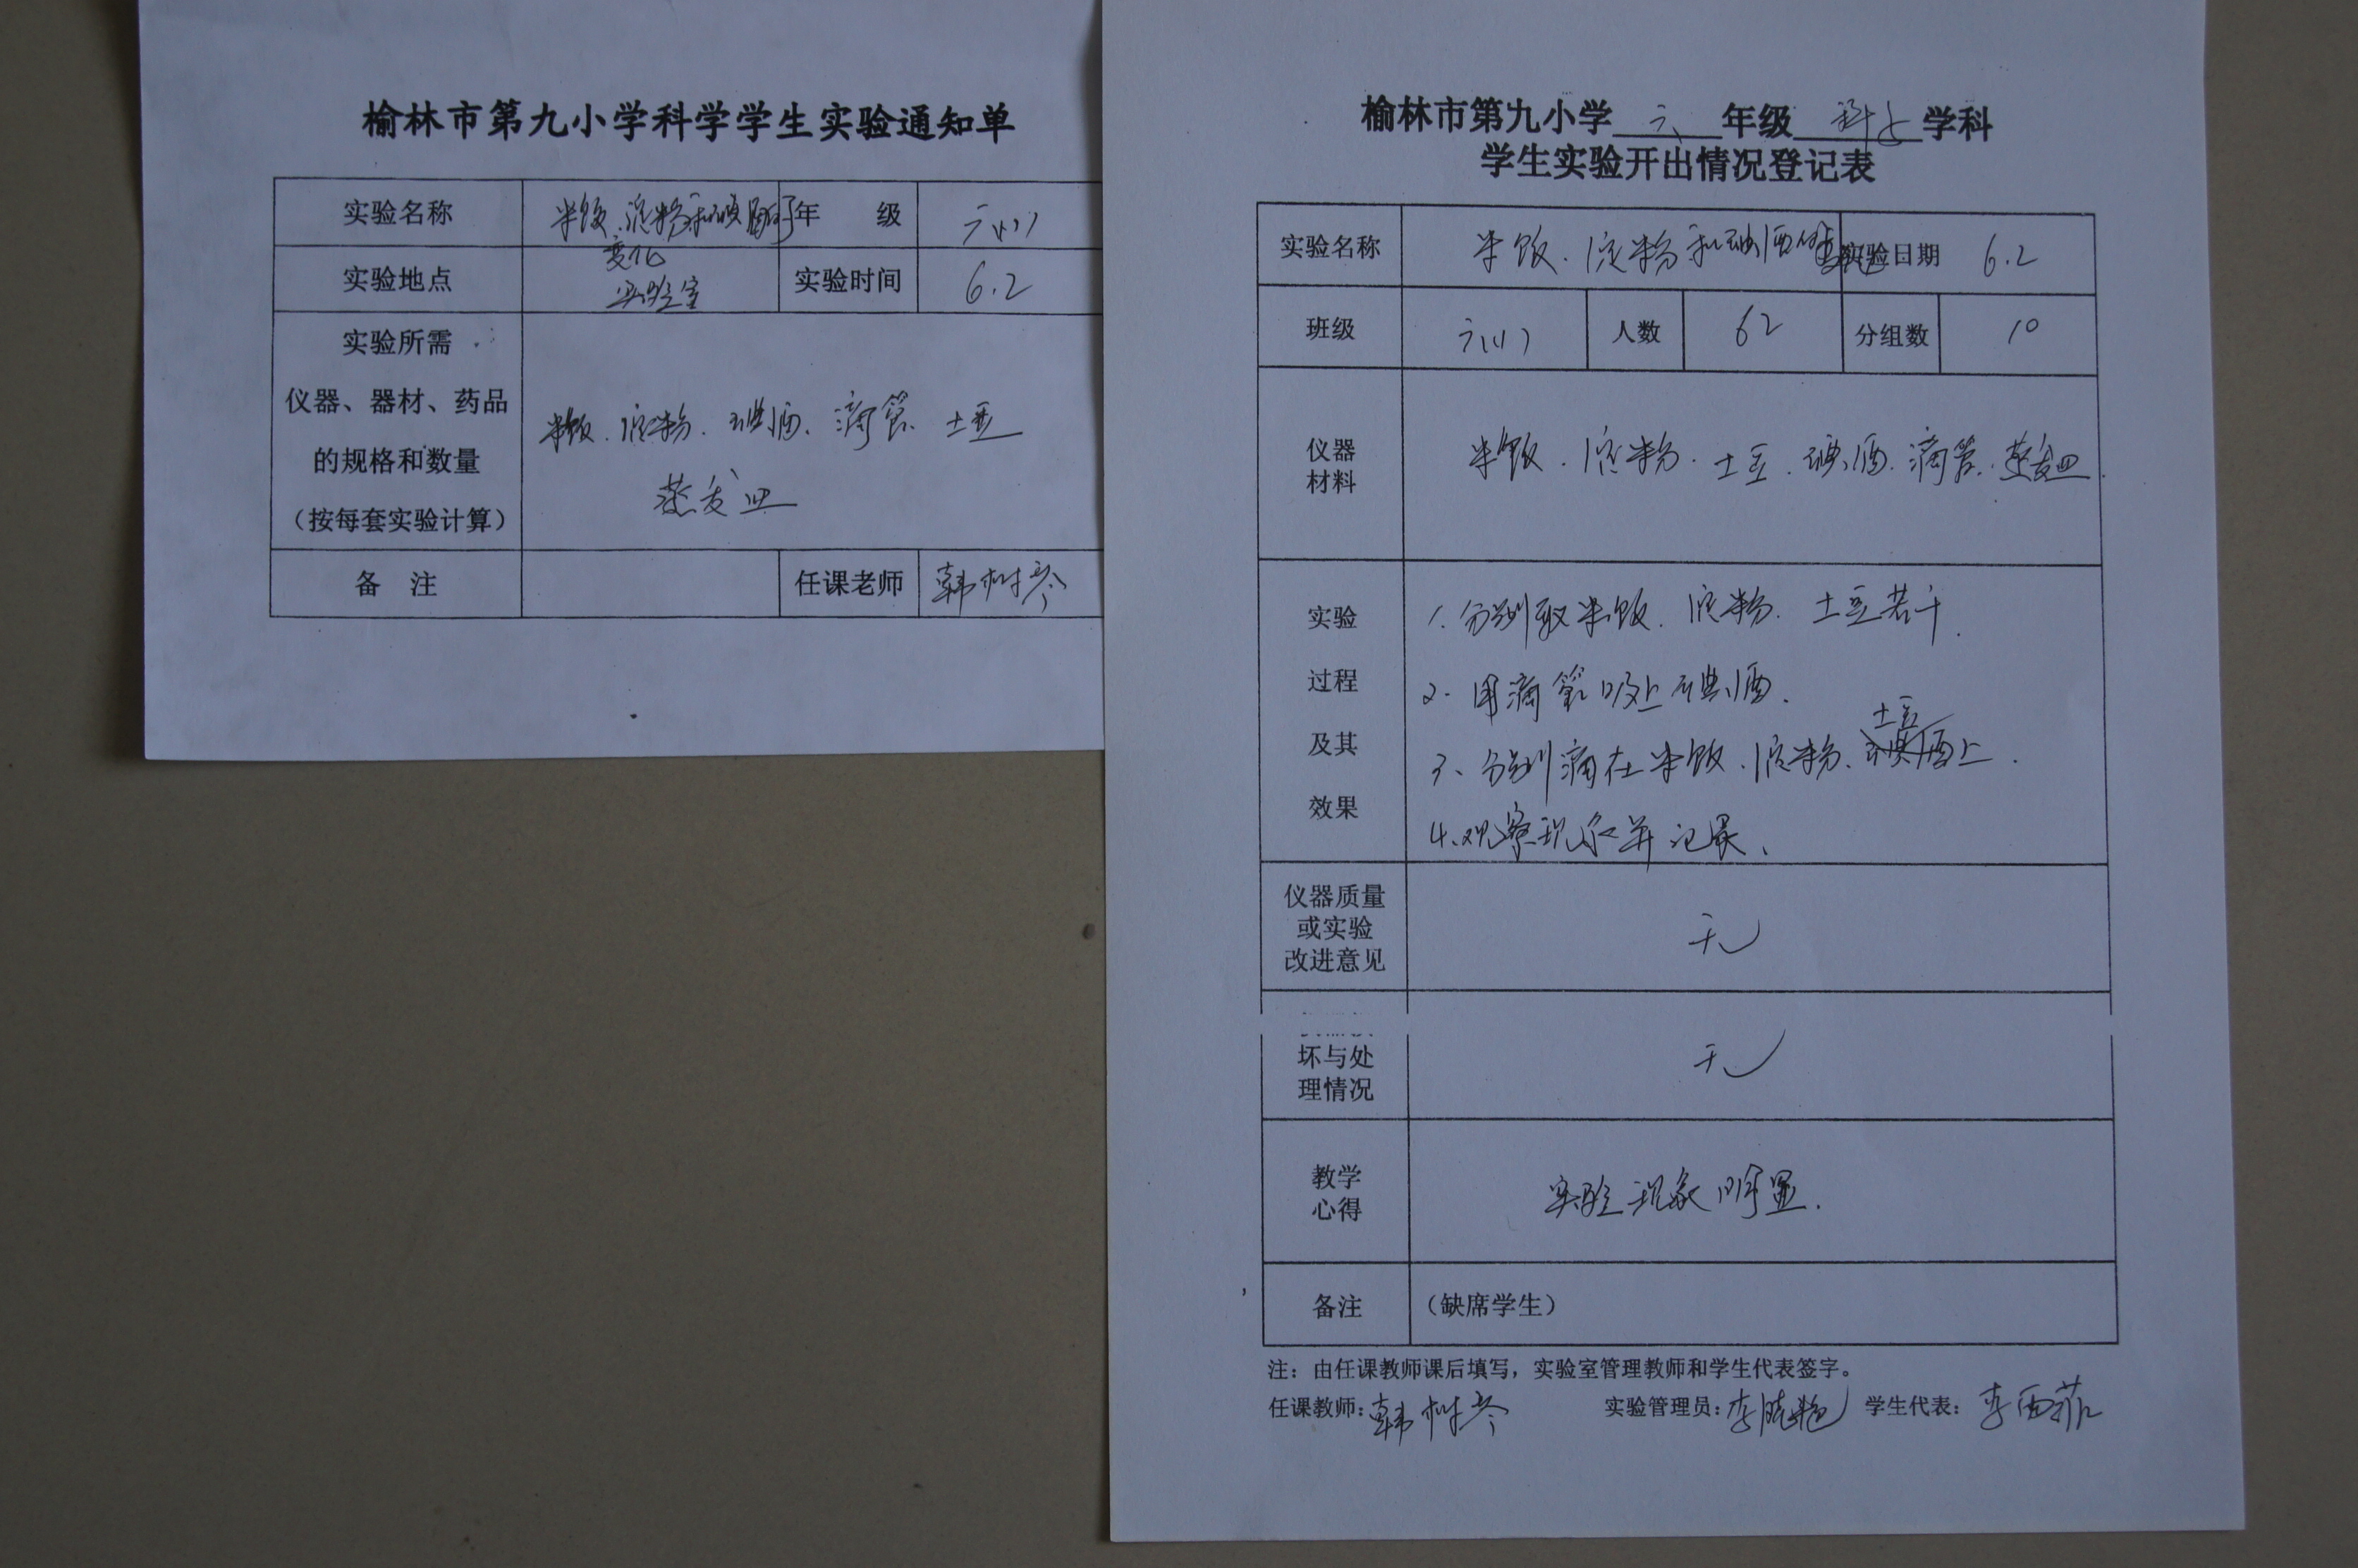 榆林市第九小学科学学生实验通知单
实验名称 米饭、淀粉和碘酒的 年 级 六(1)
变化
实验地点 实验室 实验时间 6.2
实验所需
仪器、器材、药品
的规格和数量
(按每套实验计算)
米饭、淀粉、碘酒、滴管、土豆
蒸发皿
备 注 任课老师 韩树琴
榆林市第九小学 六 年级 科学 学科
学生实验开出情况登记表
实验名称 米饭、淀粉和碘酒的变化 实验日期 6.2
班级 六(1) 人数 62 分组数 10
仪器
材料
米饭、淀粉、土豆、碘酒、滴管、蒸发皿
实验
过程
及其
效果
1、分别取米饭、淀粉、土豆若干.
2、用滴管吸上碘酒.
3、分别滴在米饭、淀粉、土豆上.
4、观察现象并记录、
仪器质量
或实验
改进意见
无
坏与处
理情况
无
教学
心得
实验现象明显.
备注 (缺席学生)
注：由任课教师课后填写，实验室管理教师和学生代表签字。
任课教师：韩树琴 实验管理员：李晓艳 学生代表：李西菲